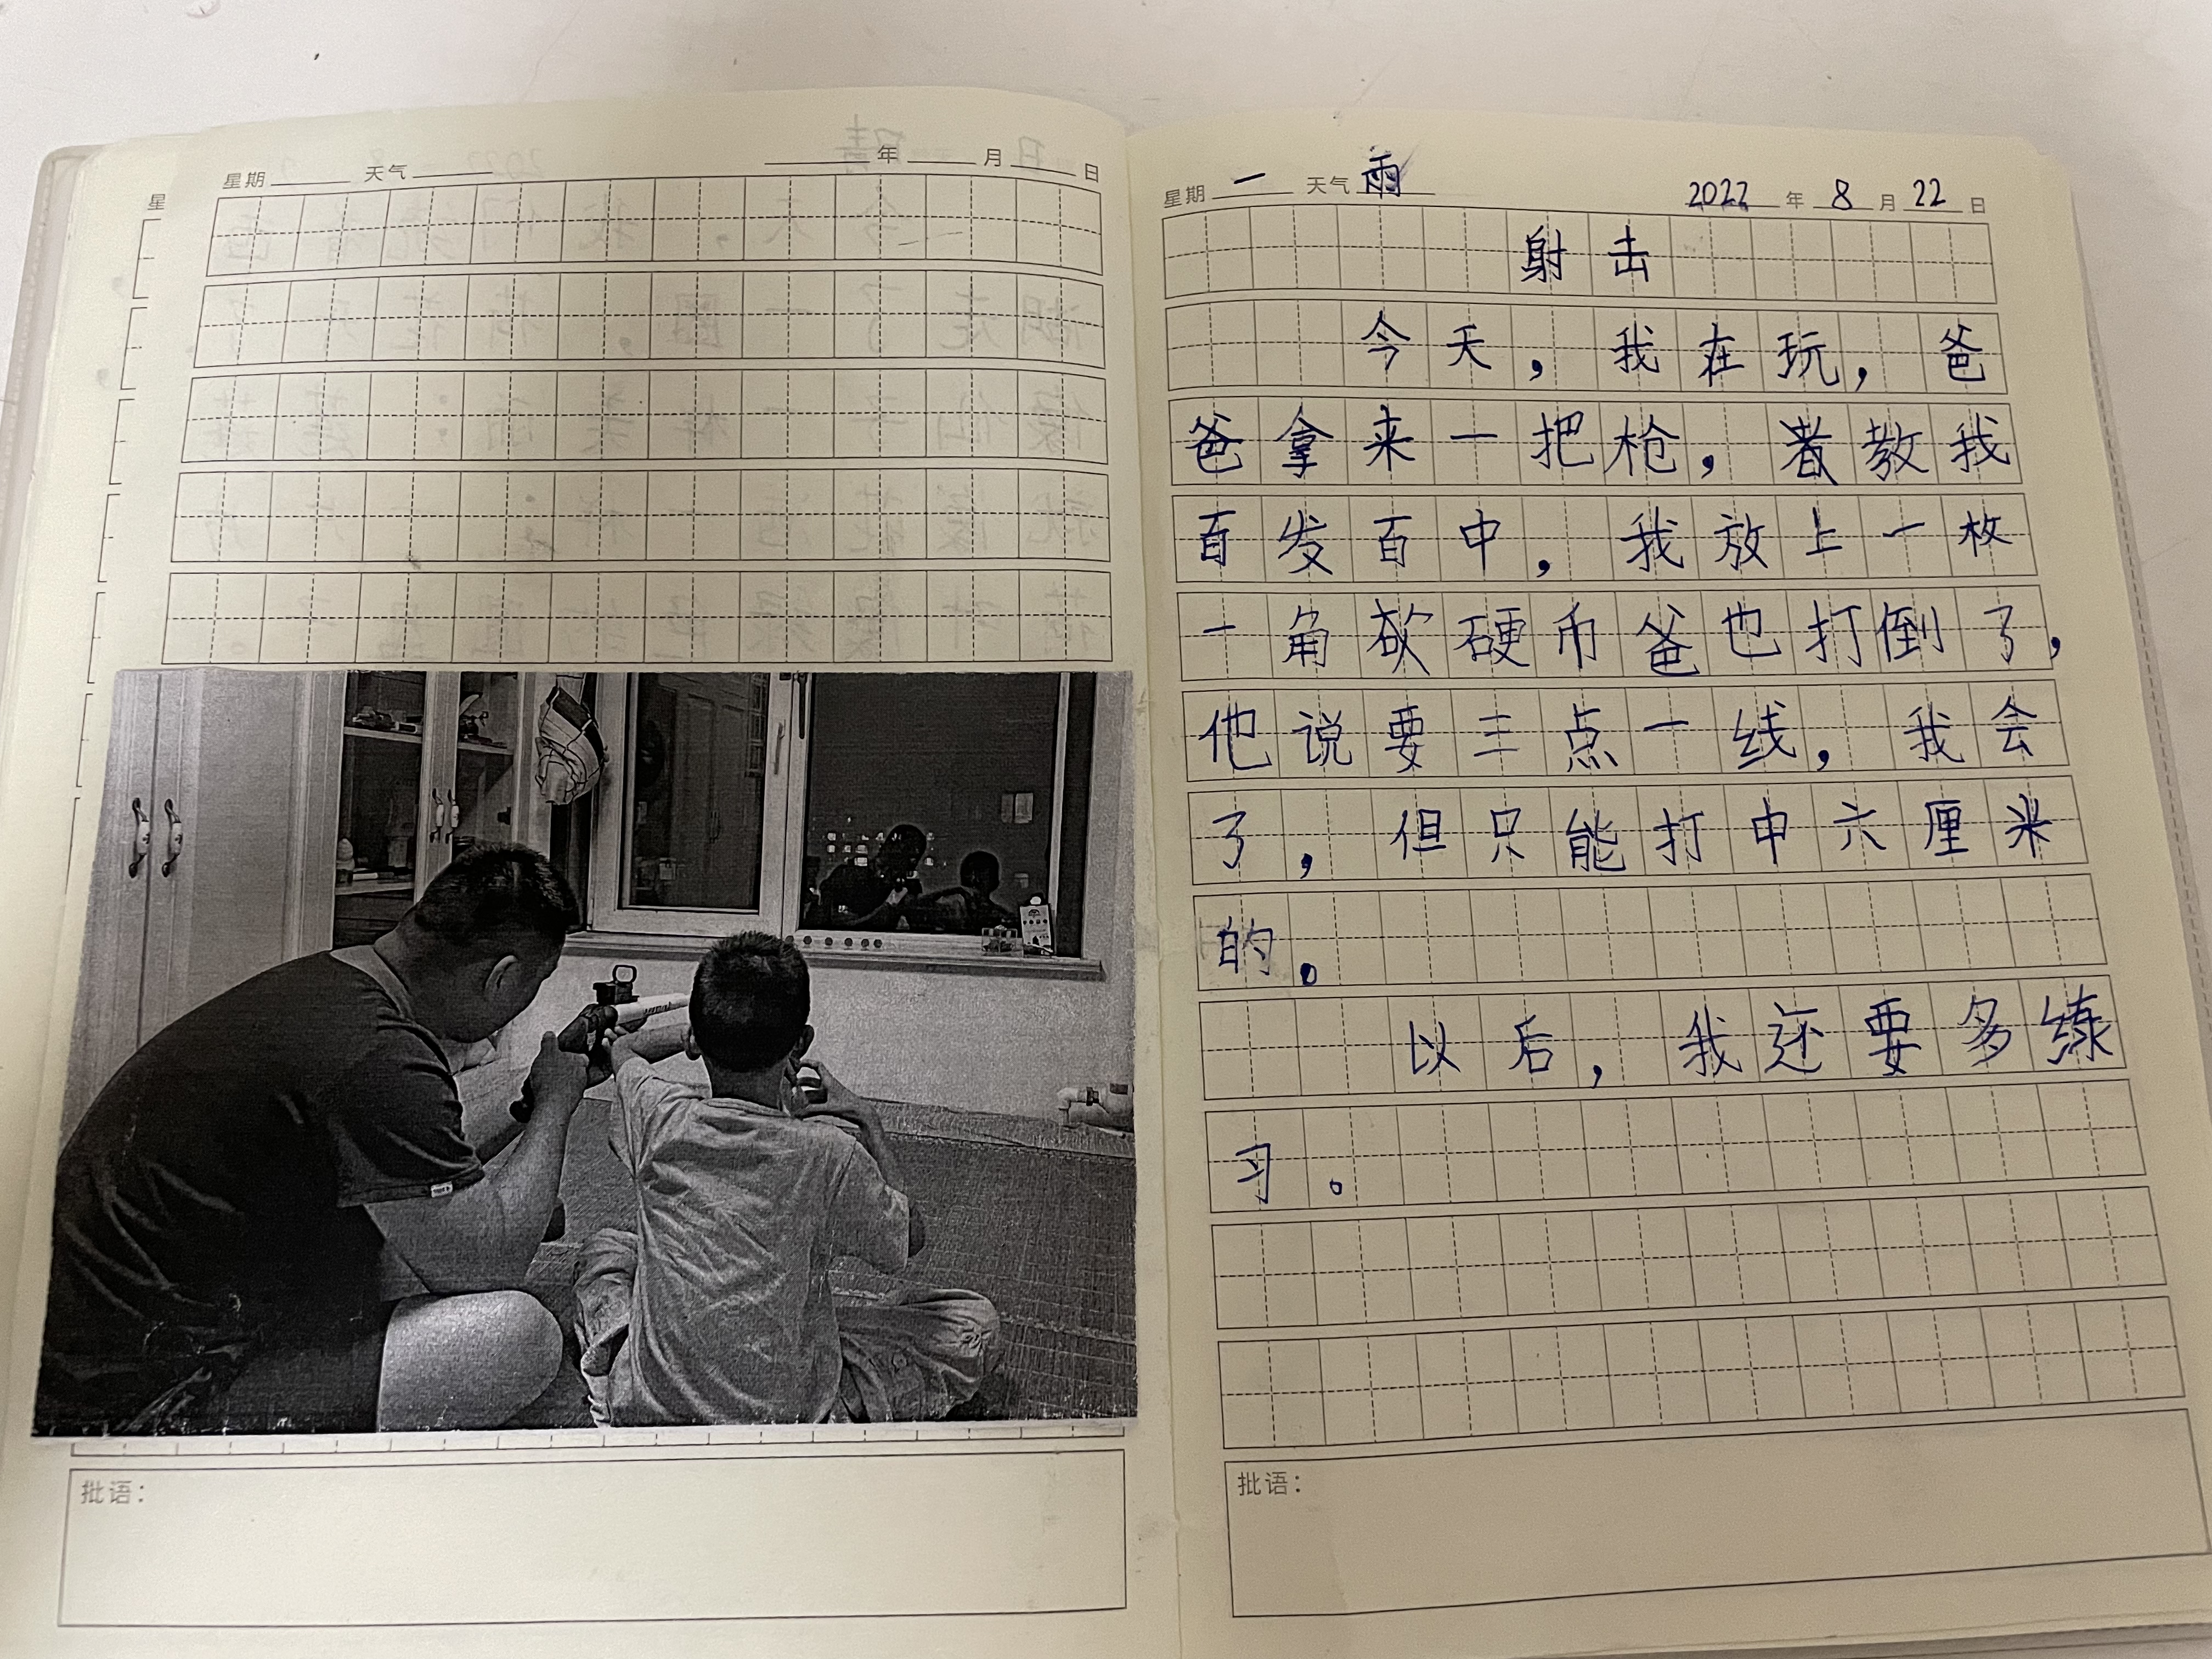 星期 天气 年 月 日
星
批语：
星期 一 天气 雨 2022 年 8 月 22 日
射击
今天，我在玩，爸
爸拿来一把枪，教我
百发百中，我放上一枚
一角硬币爸也打倒了，
他说要三点一线，我会
了，但只能打中六厘米
的。
以后，我还要多练
习。
批语：